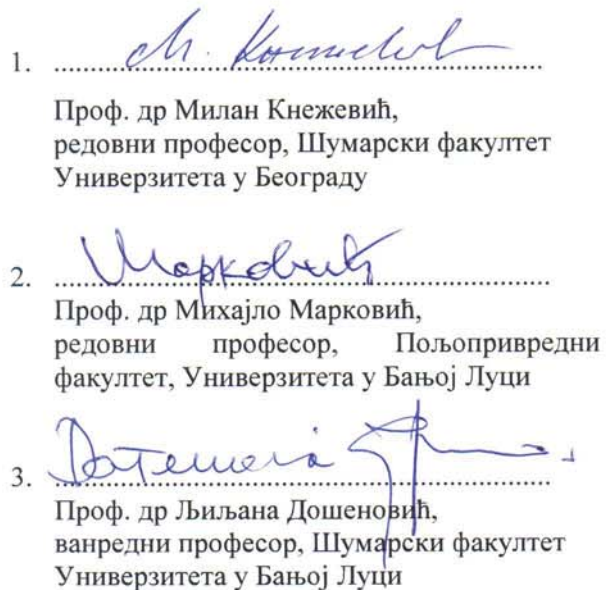 1. ..........
Проф. др Милан Кнежевић,
редовни професор, Шумарски факултет
Универзитета у Београду
2. Марковић
Проф. др Михајло Марковић,
редовни професор, Пољопривредни
факултет, Универзитета у Бањој Луци
3. ..........
Проф. др Љиљана Дошеновић,
ванредни професор, Шумарски факултет
Универзитета у Бањој Луци